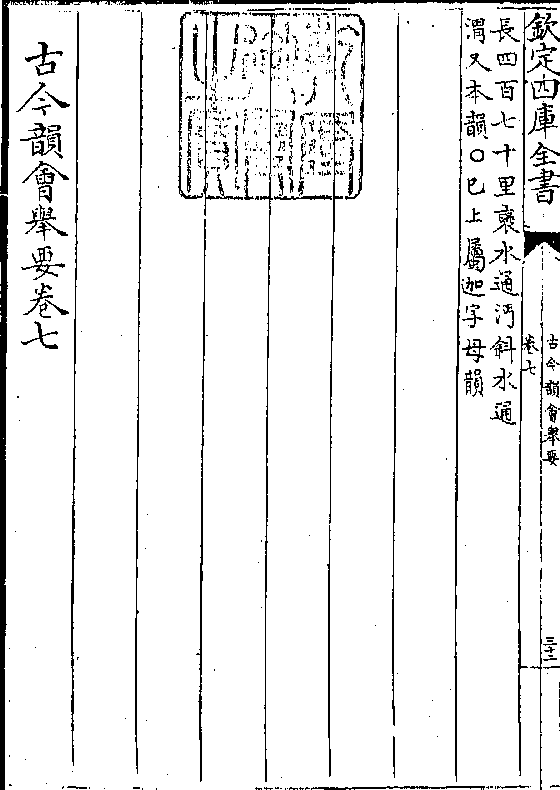 欽定四庫全書
古今韻會舉要
卷七
三十二
長四百七十里襃水通沔斜水通
渭又本韻○已上屬迦字母韻
古今韻會舉要卷七